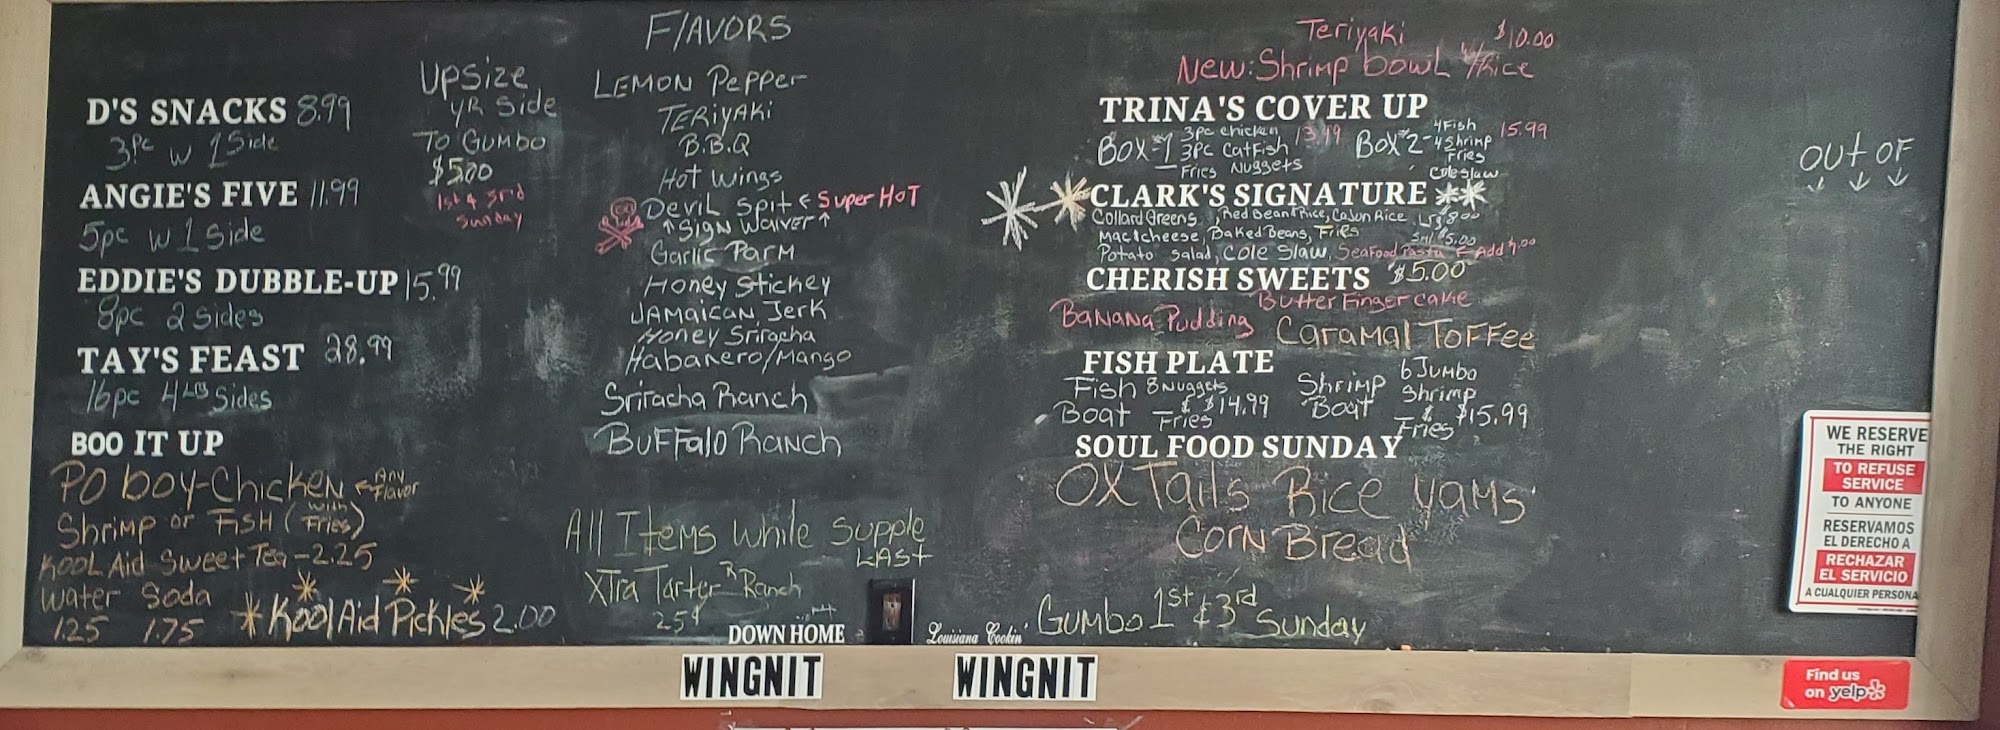 D'S SNACKS 8.99
3pc w 1 Side
ANGIE'S FIVE 11.99
5pc w 1 Side
EDDIE'S DUBBLE-UP 15.99
8pc 2 Sides
TAY'S FEAST 28.99
16pc 4 LB Sides
BOO IT UP
PO boy-Chicken ← Any Flavor
Shrimp or FISH (with Fries)
KOOL Aid Sweet Tea - 2.25
Water Soda
1.25 1.75
Kool Aid Pickles 2.00
Upsize
yR Side
To Gumbo
$5.00
1st & 3rd
Sunday
FLAVORS
LEMON Pepper
TERiyAKi
B.B.Q
Hot Wings
Devil Spit ← Super HOT
↑ SIGN WAIVER ↑
Garlic Parm
Honey Stickey
JAMAICAN Jerk
Honey Sriracha
Habanero/Mango
Sriracha Ranch
BUFFALO RANCH
All Items While Supple
LAST
XTra Tarter R Ranch
25¢
DOWN HOME
WINGNIT
Louisiana Cookin'
WINGNIT
Teriyaki $10.00
New: Shrimp bowl w/Rice
TRINA'S COVER UP
BOX #1 3pc chicken 13.49
3pc CatFish
Fries Nuggets
BOX #2 - 4 Fish 15.99
4 Shrimp
Fries
Coleslaw
CLARK'S SIGNATURE
Collard Greens, Red Bean & Rice, Cajun Rice Lrg 8.00
Mac & cheese, Baked Beans, Fries Sml $5.00
Potato Salad, Cole Slaw, Seafood Pasta Add 1.00
CHERISH SWEETS $5.00
Butter Finger cake
Banana Pudding Caramal Toffee
FISH PLATE
Fish 8 Nuggets
Boat & Fries $14.99
Shrimp 6 Jumbo
Boat Shrimp
& Fries $15.99
SOUL FOOD SUNDAY
OX Tails Rice yams
Corn Bread
Gumbo 1st & 3rd Sunday
OUT OF
↓ ↓ ↓
WE RESERVE
THE RIGHT
TO REFUSE
SERVICE
TO ANYONE
RESERVAMOS
EL DERECHO A
RECHAZAR
EL SERVICIO
A CUALQUIER PERSONA
Find us
on yelp